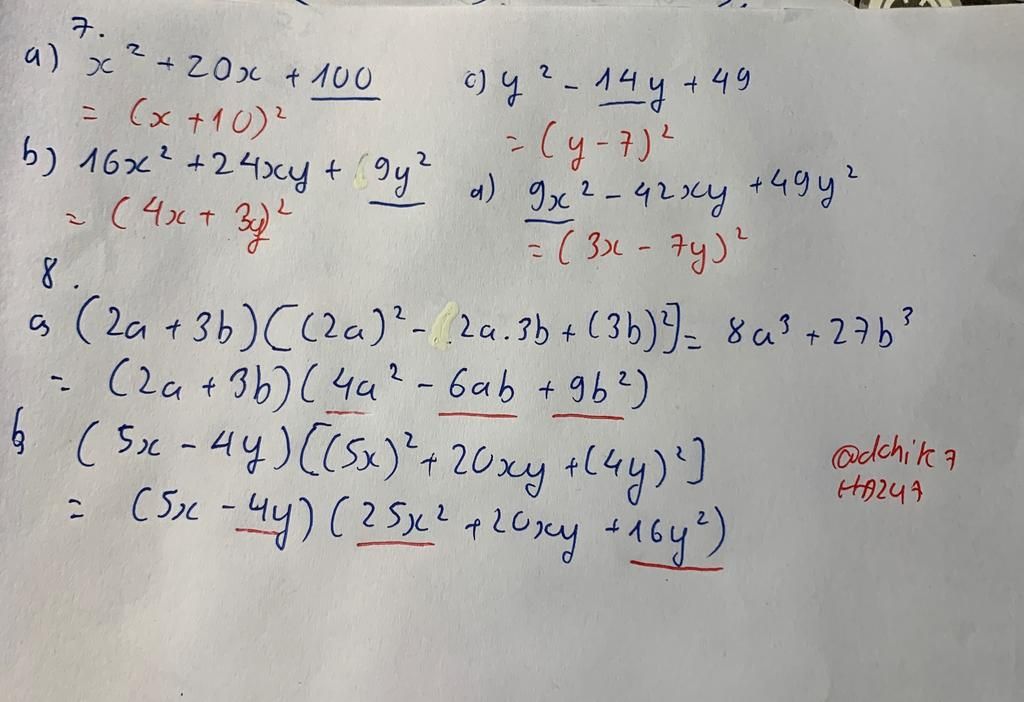 7.
a) x² + 20x + 100
= (x + 10)²
b) 16x² + 24xy + 9y²
= (4x + 3y)²
c) y² - 14y + 49
= (y - 7)²
d) 9x² - 42xy + 49y²
= (3x - 7y)²
8.
a) (2a + 3b)[(2a)² - 2a.3b + (3b)²] = 8a³ + 27b³
= (2a + 3b)(4a² - 6ab + 9b²)
b) (5x - 4y)[(5x)² + 20xy + (4y)²]
= (5x - 4y)(25x² + 20xy + 16y²)
@dchik7